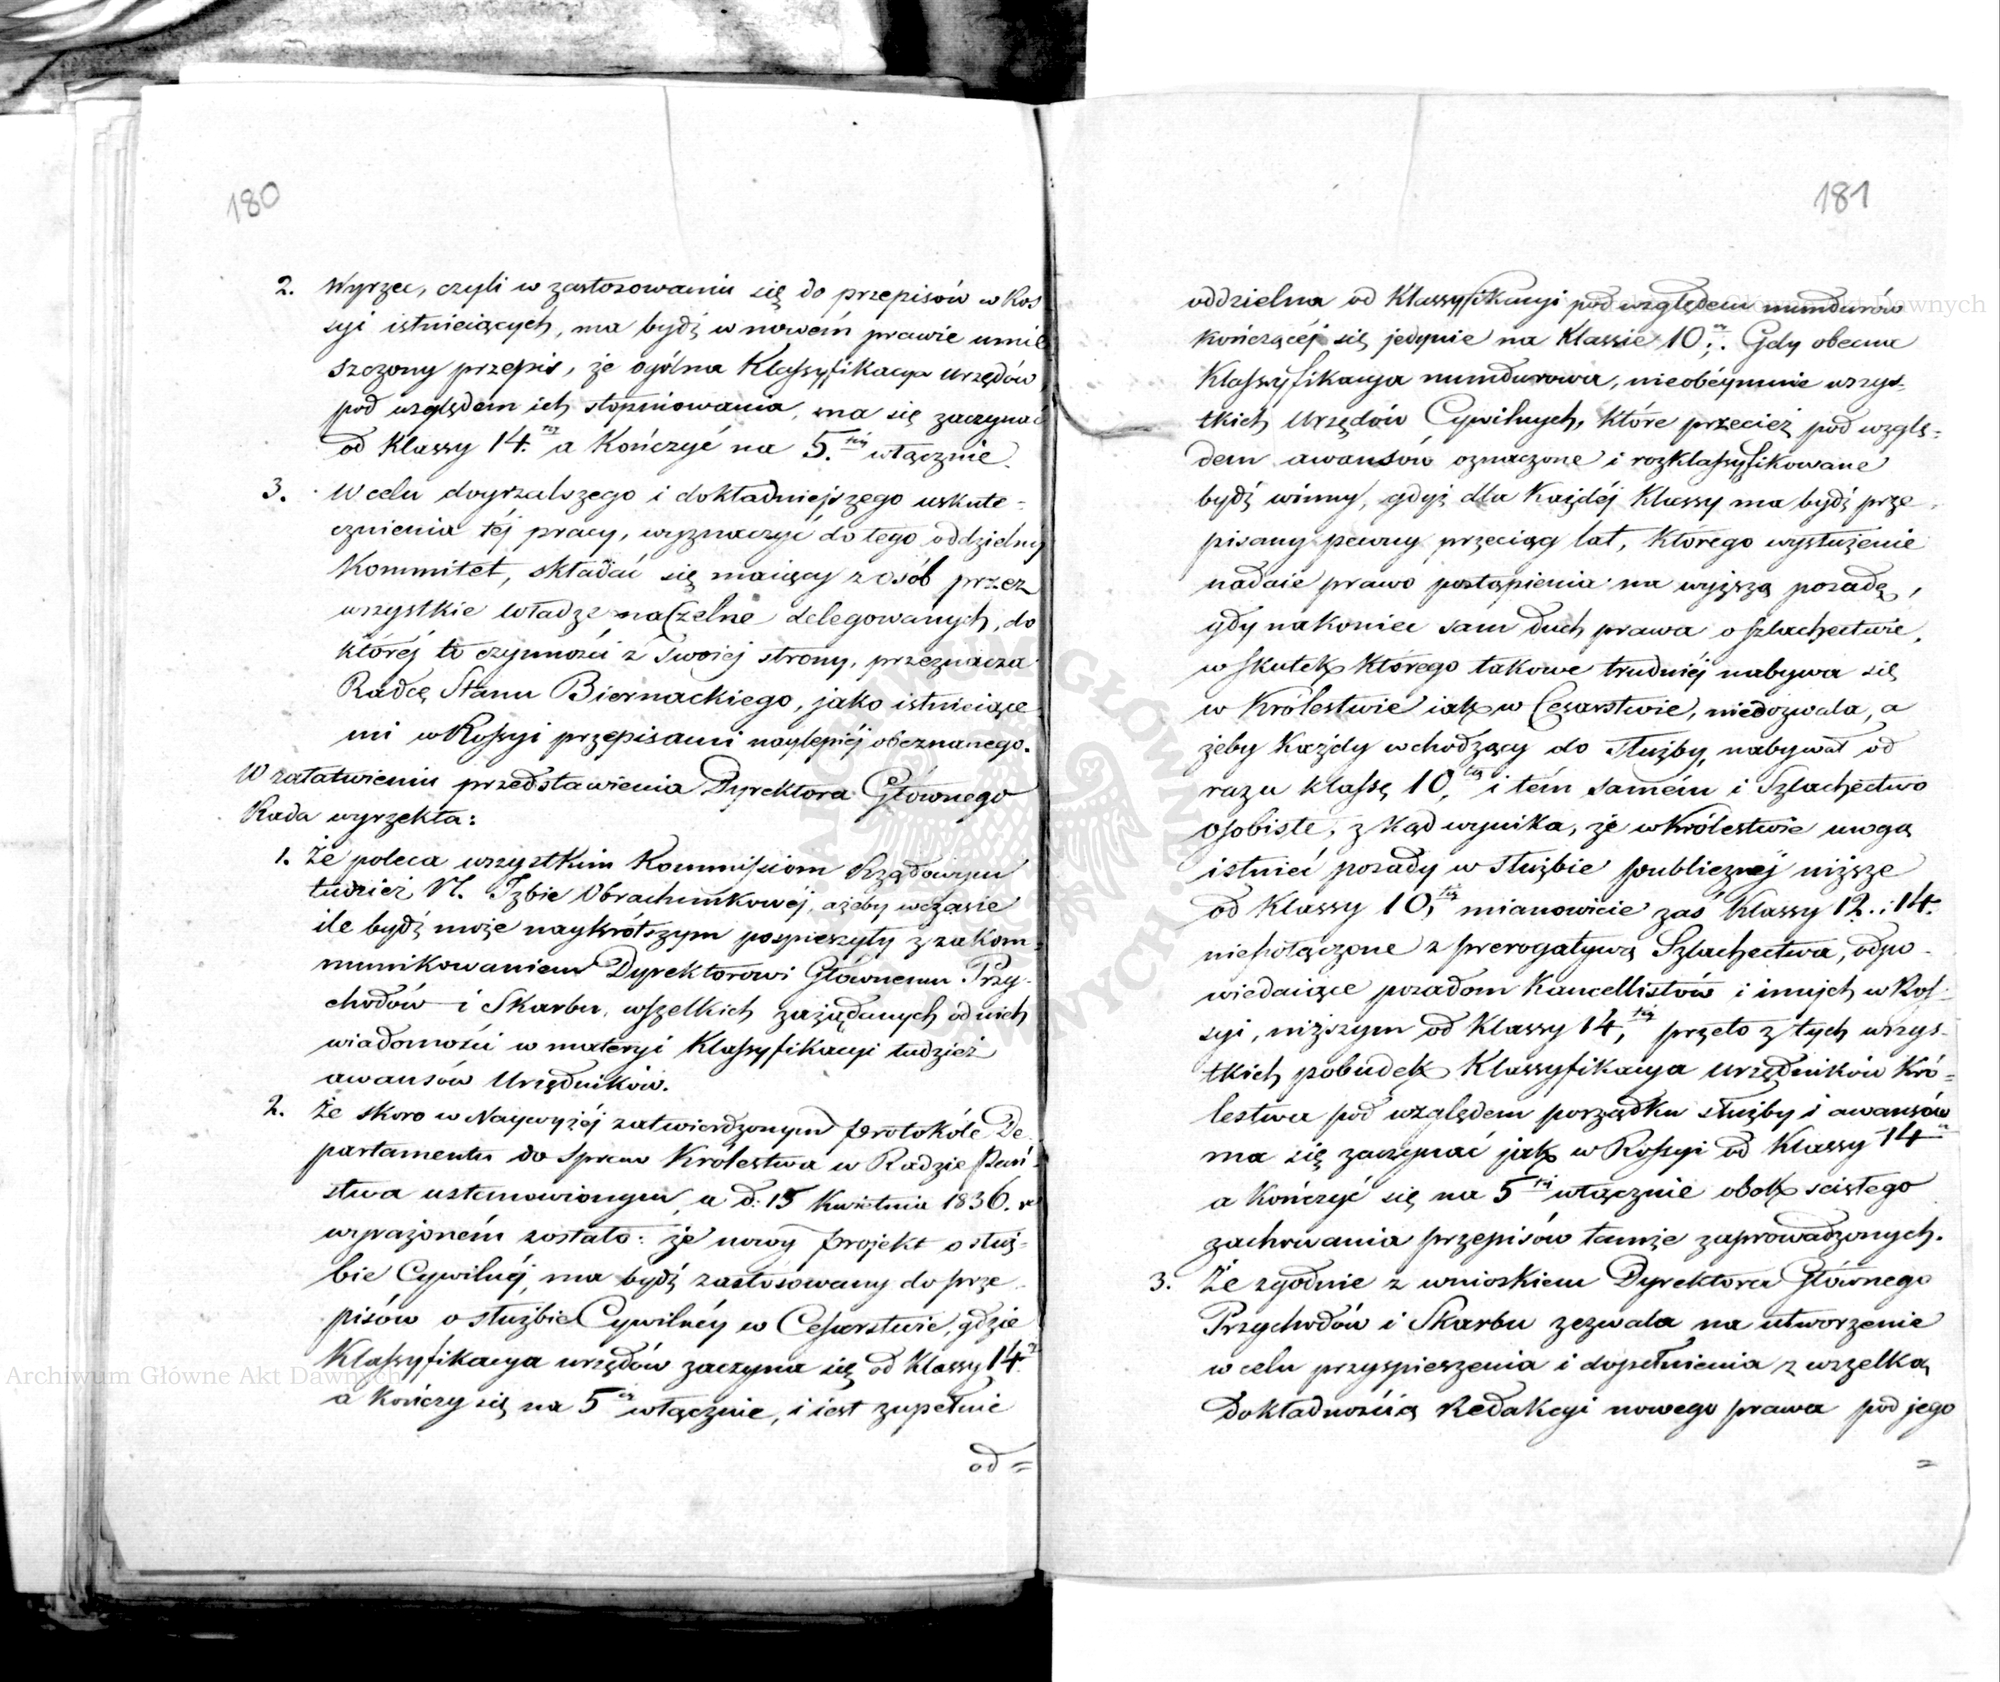 180
2. Wyrzec, czyli w zastosowaniu się do przepisów w Ros
syi istnieiących, ma bydź w nowem prawie umie
szczony przepis, że ogólna Klassyfikacya urzędów
pod względem ich stopniowania, ma się zaczynać
od Klassy 14.tey a Kończyć na 5.tey włącznie.
3. W celu doyrzalszego i dokładniejszego uskute-
cznienia téj pracy, wyznaczyć do tego oddzielny
Kommitet, składać się maiący z osób przez
wszystkie władze naczelne delegowanych, do
któréj to czynności z swoiej strony, przeznacza
Radcę Stanu Biernackiego, jako istnieiące
mi w Rossyi przepisami naylepiéj obeznanego.
W załatwieniu przedstawienia Dyrektora Głównego
Rada wyrzekła:
1. Że poleca wszystkim Kommissiom Rządowym
tudzież N. Izbie Obrachunkowéj, ażeby w czasie
ile bydź może naykrótszym pospieszyły z zakom-
munikowaniem Dyrektorowi Głównemu Przy-
chodów i Skarbu, wszelkich zażądanych od nich
wiadomości w materyi Klassyfikacyi tudzież
awansów Urzędników.
2. Że skoro w Naywyżéj zatwierdzonym protokóle De
partamentu do Spraw Królestwa w Radzie Pań-
stwa ustanowionym, a d. 15 Kwietnia 1836. r
wyrażoném zostało: że nowy projekt o służ-
bie Cywilnéj, ma bydź zastosowany do prze
pisów o służbie Cywilnéy w Cesarstwie, gdzie
Klassyfikacya urzędów zaczyna się od Klassy 14.
a Kończy się na 5 włącznie, i iest zupełnie
od =
181
oddzielna od Klassyfikacyi pod względem mundurów
kończącéj się jedynie na Klassie 10. Gdy obecna
Klassyfikacya mundurowa, nieobéymuie wszys-
tkich Urzędów Cywilnych, które przecież pod wzglę-
dem awansów oznaczone i rozklassyfikowane
bydź winny, gdyż dla Każdéj Klassy ma bydź prze
pisany pewny przeciąg lat, którego wysłużenie
nadaie prawo postąpienia na wyższą posadę,
gdy nakoniec sam duch prawa o szlachectwie,
w skutek którego takowe trudniéj nabywa się
w Królestwie iak w Cesarstwie, niedozwala, a
żeby Każdy wchodzący do służby, nabywał od
razu klassę 10,tą i tém samém i Szlachectwo
osobiste, z kąd wynika, że w Królestwie mogą
istnieć posady w służbie publicznéj niższe
od Klassy 10,téj mianowicie zaś Klassy 12. i 14.
niepołączone z prerogatywą Szlachectwa, odpo-
wiedaiące posadom Kancellistów i innych w Ros-
syi, niższym od Klassy 14,téj przeto z tych wszys-
tkich pobudek Klassyfikacya urzędników Kró-
lestwa pod względem porządku służby i awansów
ma się zaczynać jak w Rossyi od Klassy 14
a Kończyć się na 5téj włącznie obok scisłego
zachowania przepisów tamże zaprowadzonych.
3. Że zgodnie z wnioskiem Dyrektora Głównego
Przychodów i Skarbu zezwala na utworzenie
w celu przyspieszenia i dopełnienia z wszelką
Dokładnością Redakcyi nowego prawa pod jego
=
Archiwum Główne Akt Dawnych
Archiwum Główne Akt Dawnych